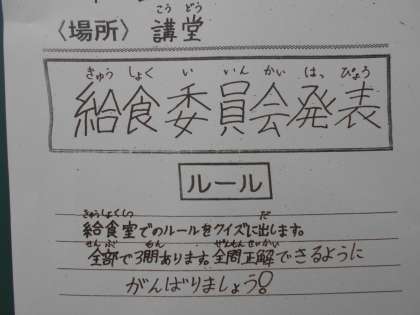 〈場所〉 講堂
給食委員会発表
ルール
給食室でのルールをクイズに出します。
全部で3問あります。全問正解できるように
がんばりましょう!